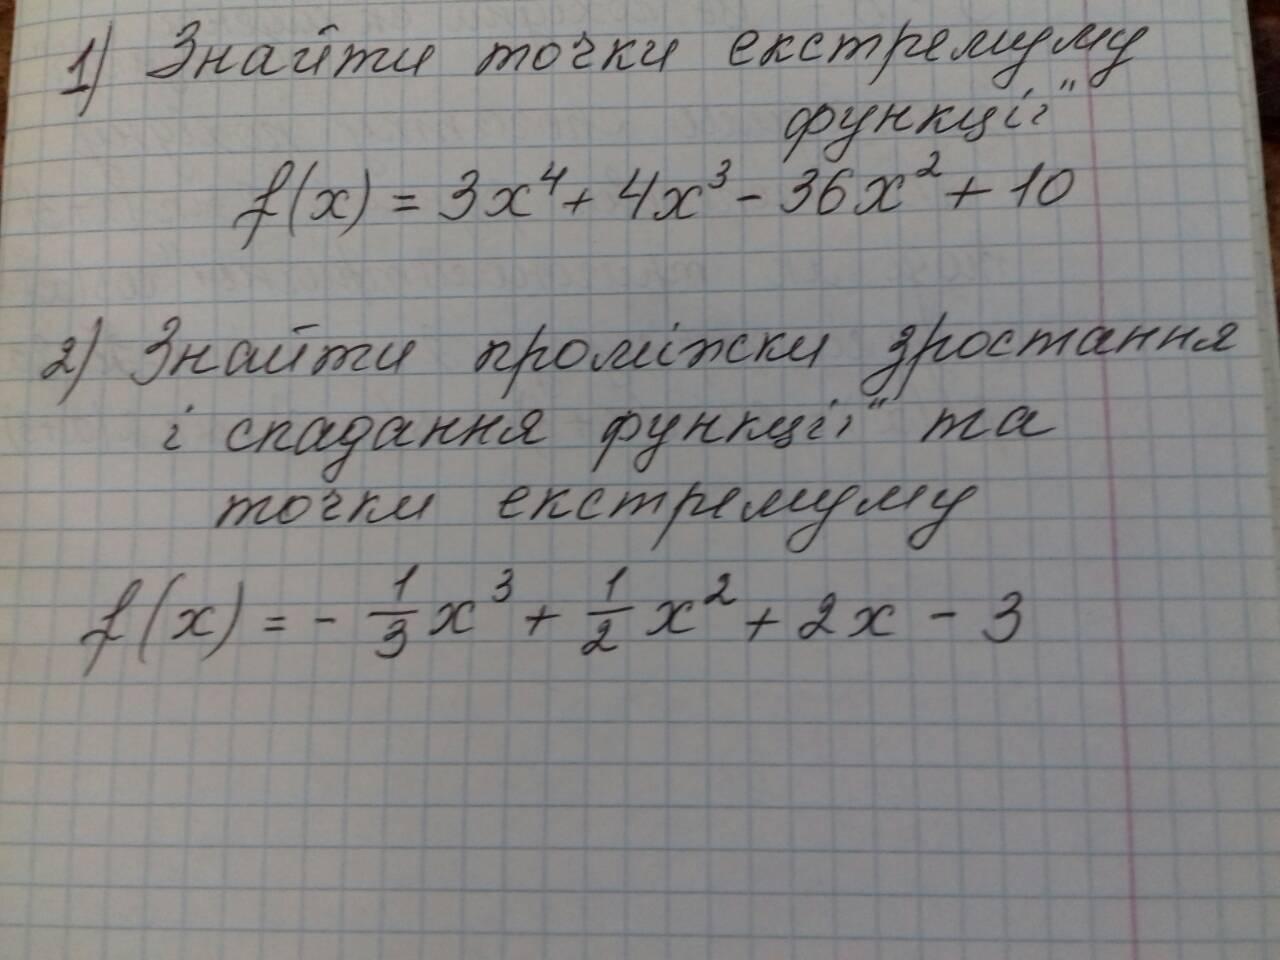 1) Знайти точки екстремуму
функції
f(x) = 3x⁴ + 4x³ - 36x² + 10
2) Знайти проміжки зростання
і спадання функції та
точки екстремуму
f(x) = - 1/3 x³ + 1/2 x² + 2x - 3